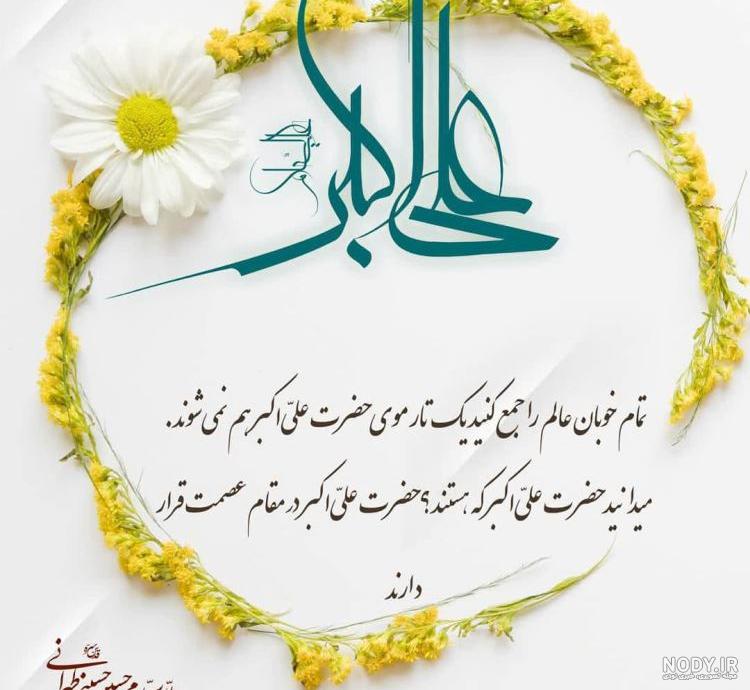 علی اکبر
علیه السلام
تمام خوبان عالم را جمع کنید یک تار موی حضرت علیّ اکبر هم نمی شوند.
میدانید حضرت علیّ اکبر که هستند؟ حضرت علیّ اکبر در مقام عصمت قرار
دارند
حسینی طهرانی
NODY.IR
مجله تصویری، خبری نودی